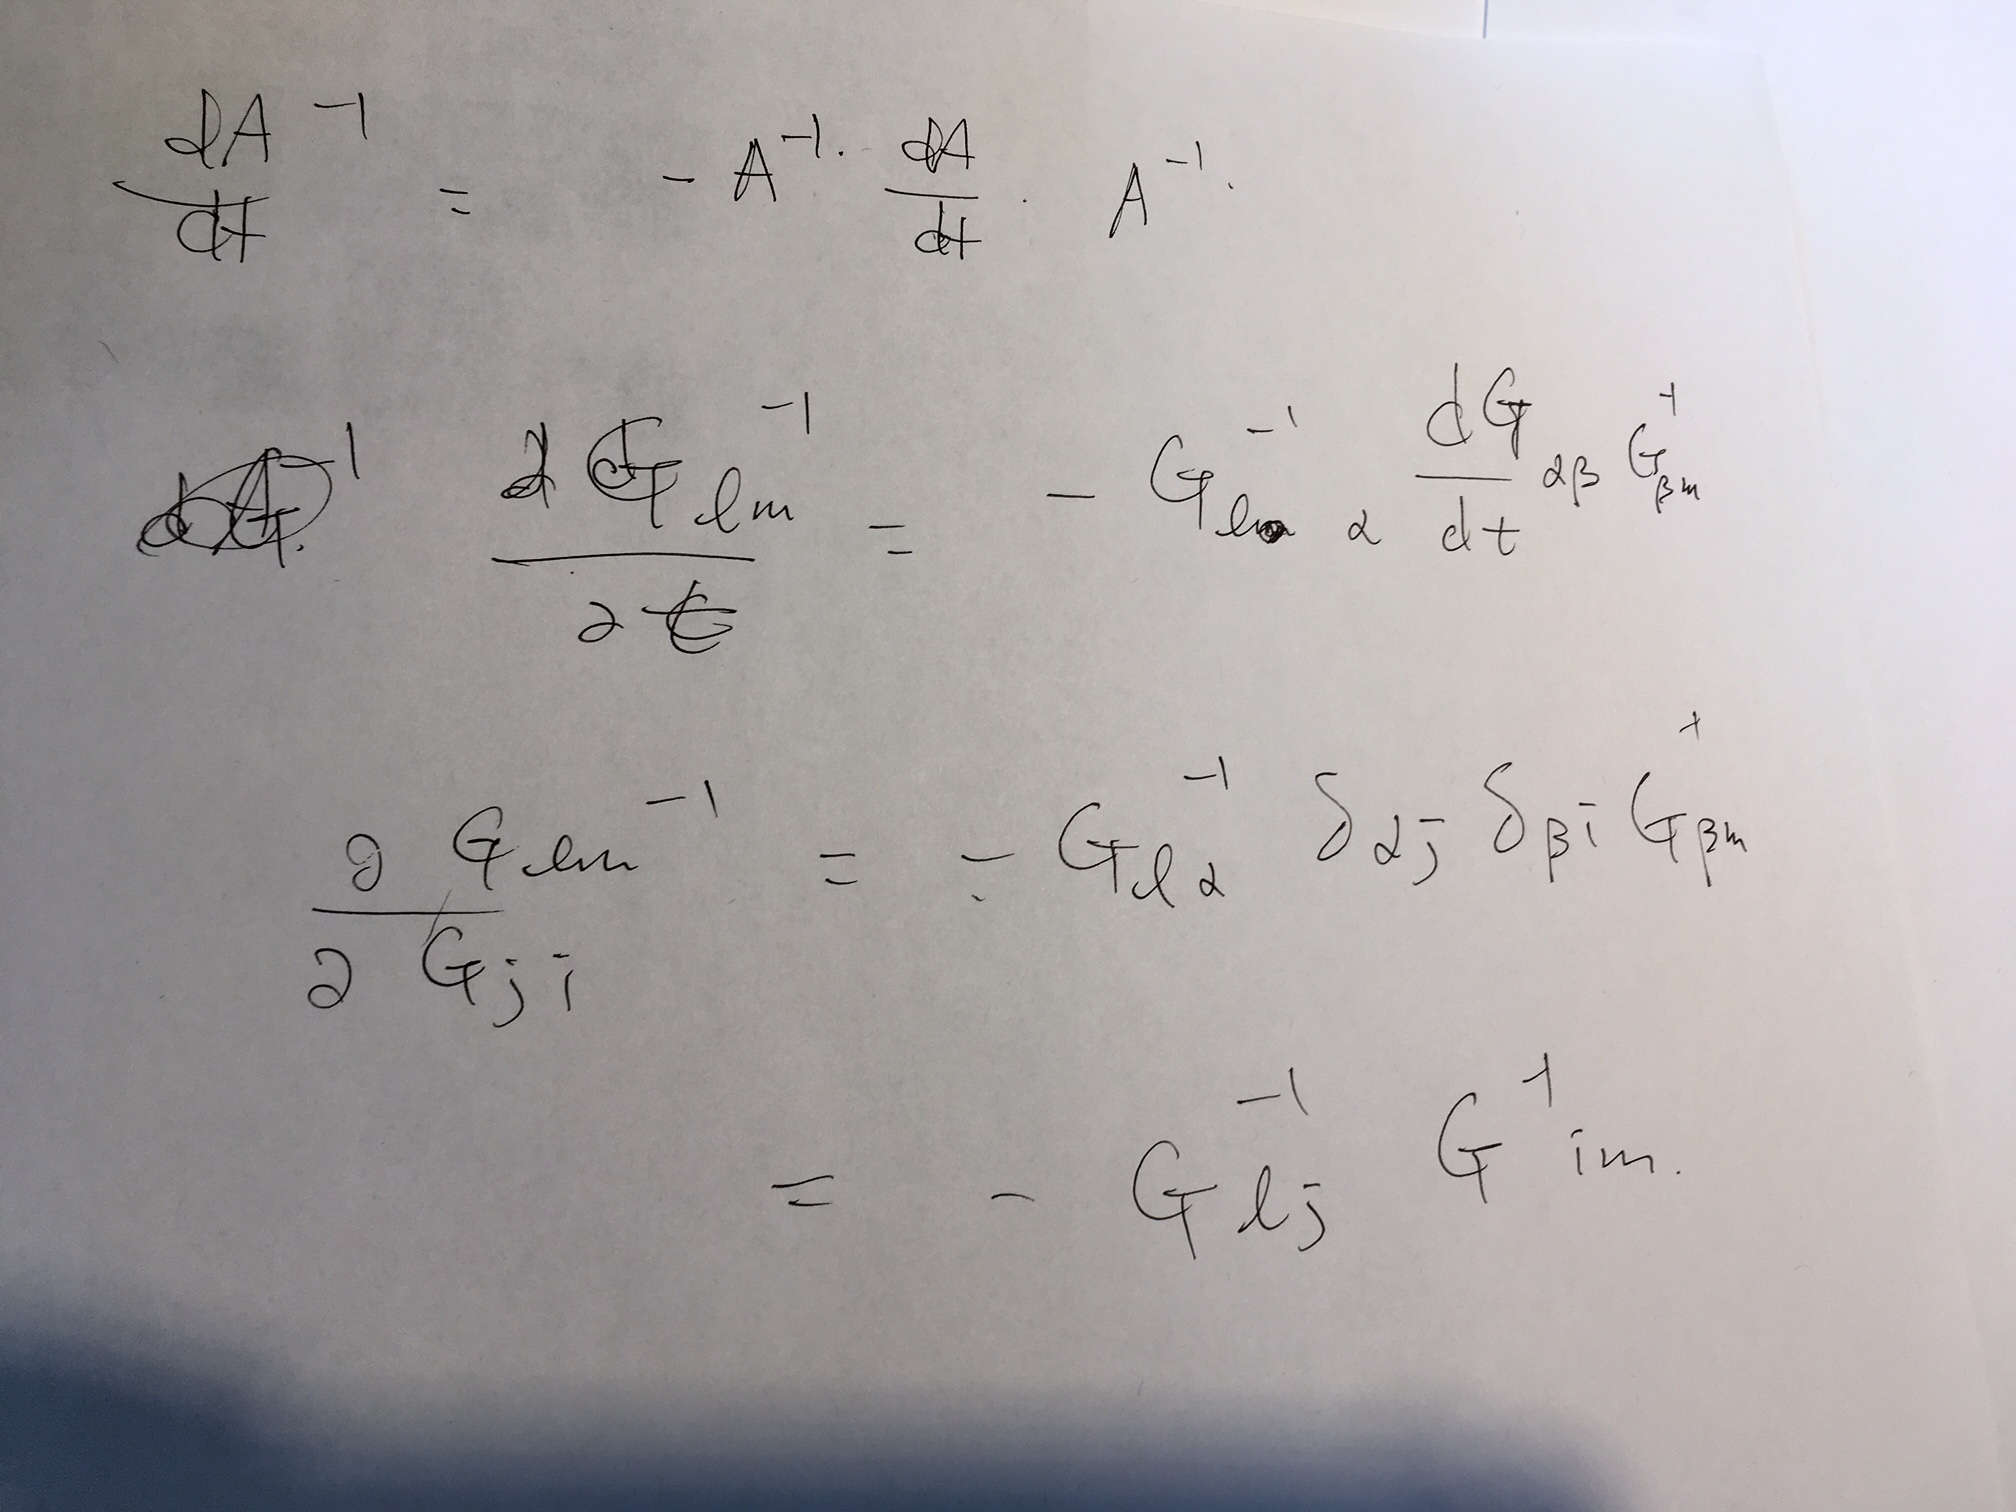 dA⁻¹/dt = - A⁻¹ · dA/dt · A⁻¹.
∂G_{lm}⁻¹/∂t = - G_{l α}⁻¹ dG_{αβ}/dt G_{βm}⁻¹
∂G_{lm}⁻¹/∂G_{ji} = - G_{lα}⁻¹ δ_{αj} δ_{βi} G_{βm}⁻¹
= - G_{lj}⁻¹ G⁻¹_{im}.